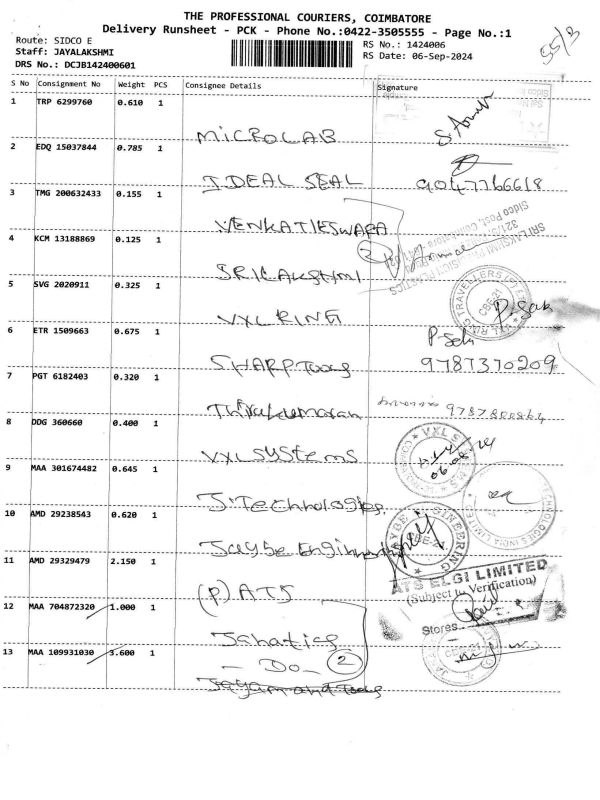 THE PROFESSIONAL COURIERS, COIMBATORE
Delivery Runsheet - PCK - Phone No.:0422-3505555 - Page No.:1
Route: SIDCO E
RS No.: 1424006
Staff: JAYALAKSHMI
RS Date: 06-Sep-2024
DRS No.: DCJB142400601
55/3
S No Consignment No Weight PCS Consignee Details Signature
1 TRP 6299760 0.610 1
MICROLAB
2 EDQ 15037844 0.785 1
IDEAL SEAL 9047766618
3 TMG 200632433 0.155 1
VENKATESWARA
4 KCM 13188869 0.125 1
2
SRILAKSHMI
5 SVG 2020911 0.325 1
VXL RING
6 ETR 1509663 0.675 1
SHARP Tools 9787370209
7 PGT 6182403 0.320 1
Thirukumaran 9787800864
8 DDG 360660 0.400 1
VXL SYSTEMS
9 MAA 301674482 0.645 1
J.Technologies.
10 AMD 29238543 0.620 1
Jaybe Engineering
11 AMD 29329479 2.150 1
(P) ATS
ATS ELGI LIMITED
(Subject to Verification)
Stores
12 MAA 704872320 1.000 1
13 MAA 109931030 3.600 1
- Do - 2